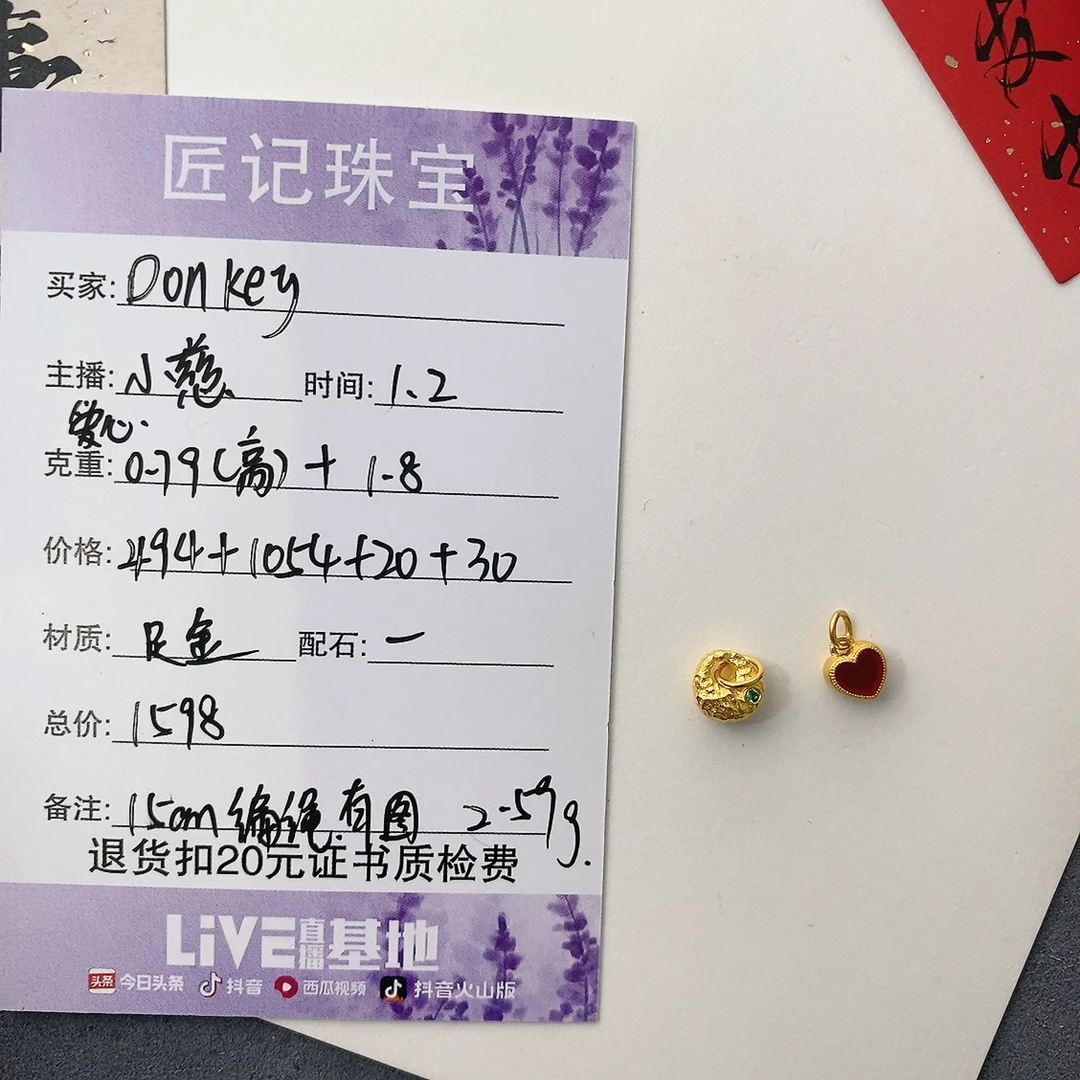 匠记珠宝
买家: Donkey
主播: 小慈 时间: 1.2
爱心.
克重: 0.79(高)+1.8
价格: 494+1054+20+30
材质: 足金 配石: 一
总价: 1598
备注: 15cm编绳.有图 2.59g.
退货扣20元证书质检费
LiVE直播基地
头条 今日头条 抖音 西瓜视频 抖音火山版